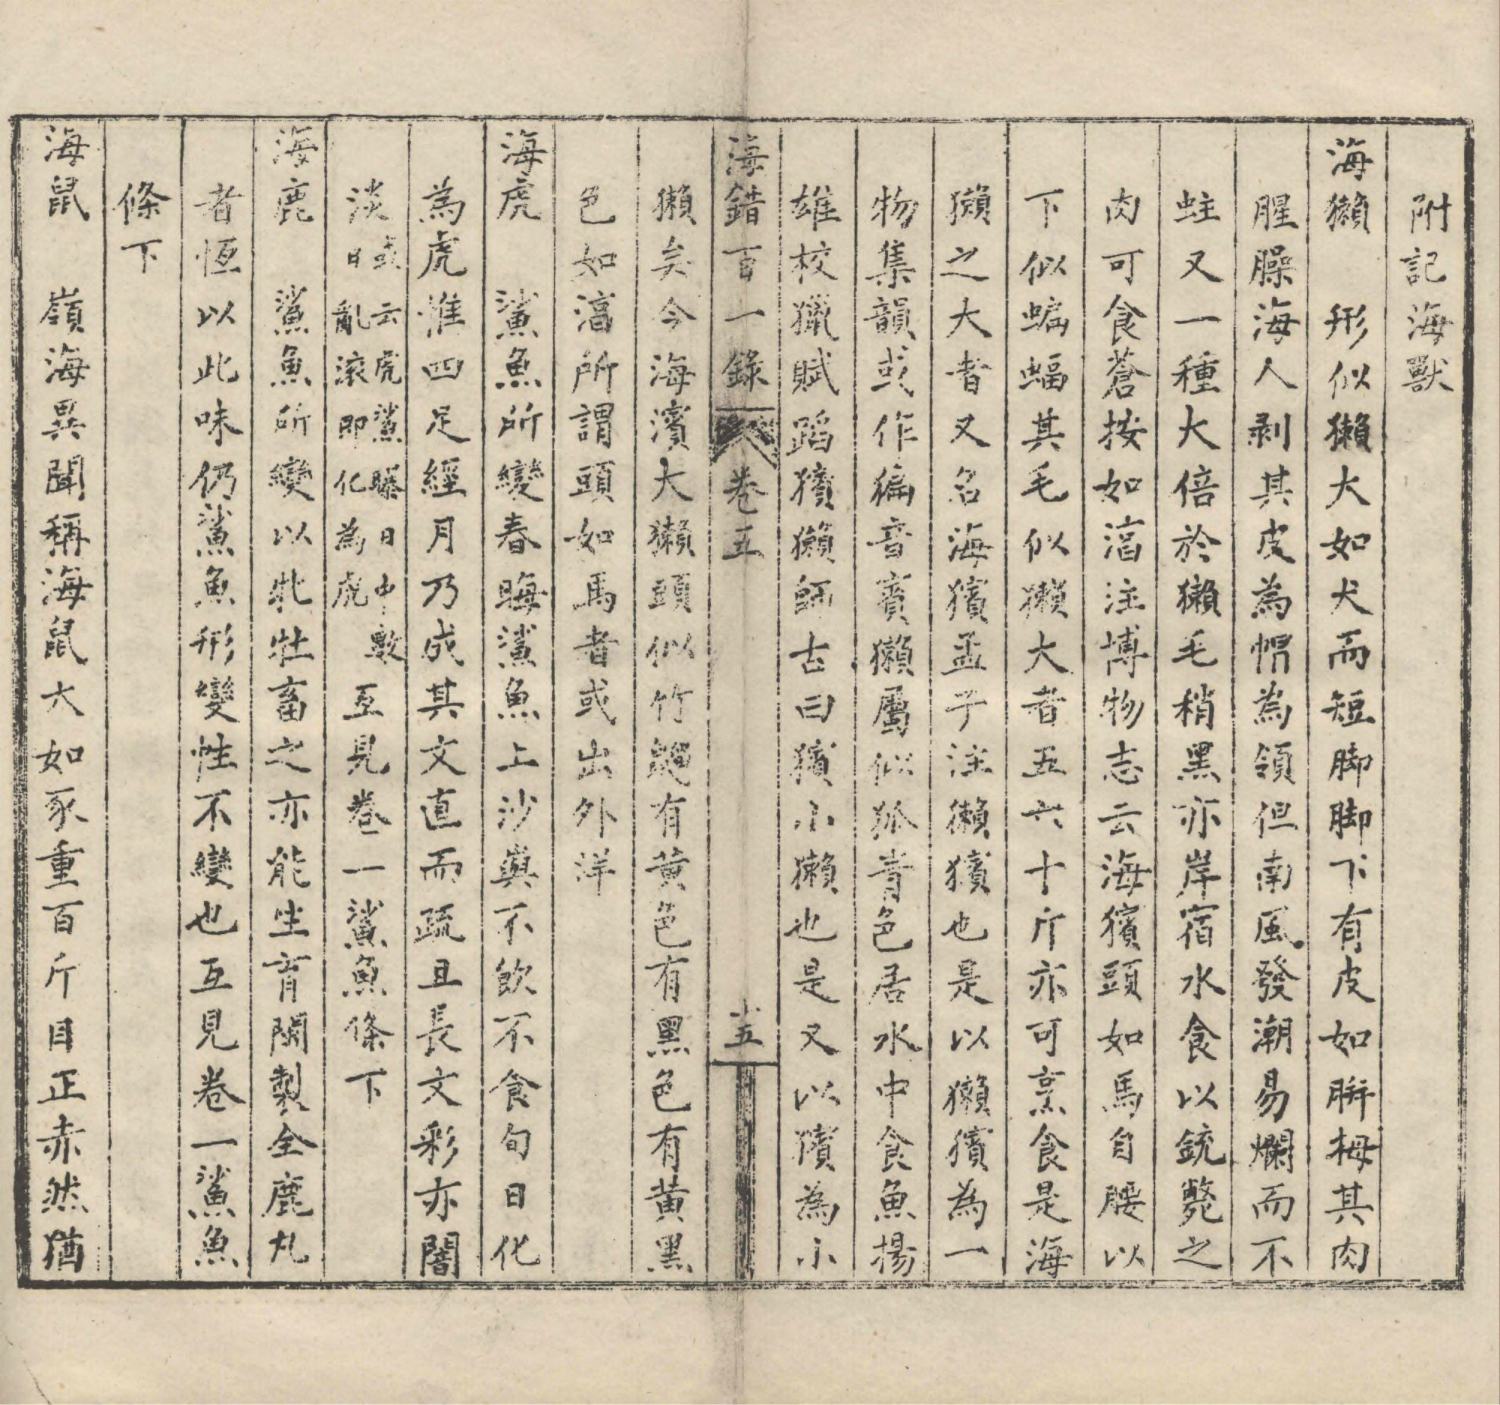 附記海獸
海獺　形似獺大如犬而短脚脚下有皮如胼拇其肉
腥臊海人剥其皮為帽為領但南風發潮易爛而不
蛀又一種大倍於獺毛稍黑亦岸宿水食以銃斃之
肉可食蒼按如滈注博物志云海獱頭如馬自腰以
下似蝙蝠其毛似獺大者五六十斤亦可烹食是海
獺之大者又名海獱孟子注獺獱也是以獺獱為一
物集韻或作猵音賓獺屬似狐青色居水中食魚揚
雄校獵賦蹈獱獺師古曰獱小獺也是又以獱為小
海錯百一錄　卷五　十五
獺矣今海濱大獺頭似竹䶉有黄色有黑色有黄黑
色如滈所謂頭如馬者或出外洋
海虎　鯊魚所變春晦鯊魚上沙嶼不飲不食旬日化
為虎惟四足經月乃成其文直而疏且長文彩亦闇
淡或云虎鯊曝日中數日亂滚即化為虎互見卷一鯊魚條下
海鹿　鯊魚所變以牝牡畜之亦能生育閩製全鹿丸
者恆以此味仍鯊魚形變性不變也互見卷一鯊魚
條下
海鼠　嶺海異聞稱海鼠大如豕重百斤目正赤然猶